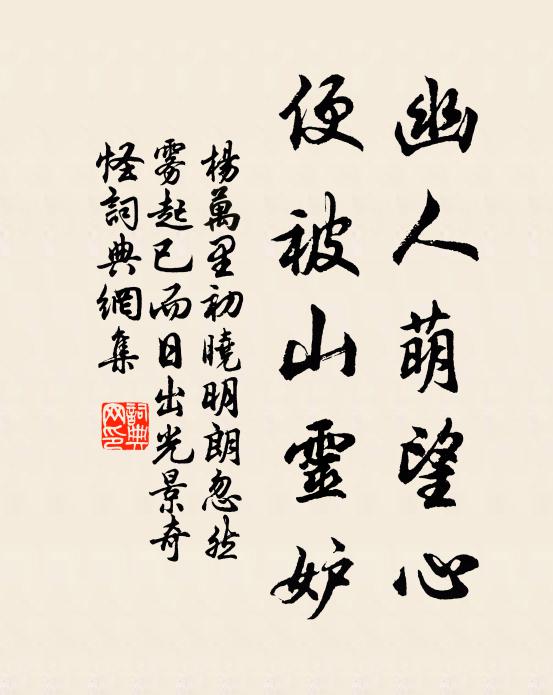 幽人萌望心
便被山靈妒
楊萬里初曉明朗忽然
雾起已而日出光景奇
怪詞典網集
詞典网印